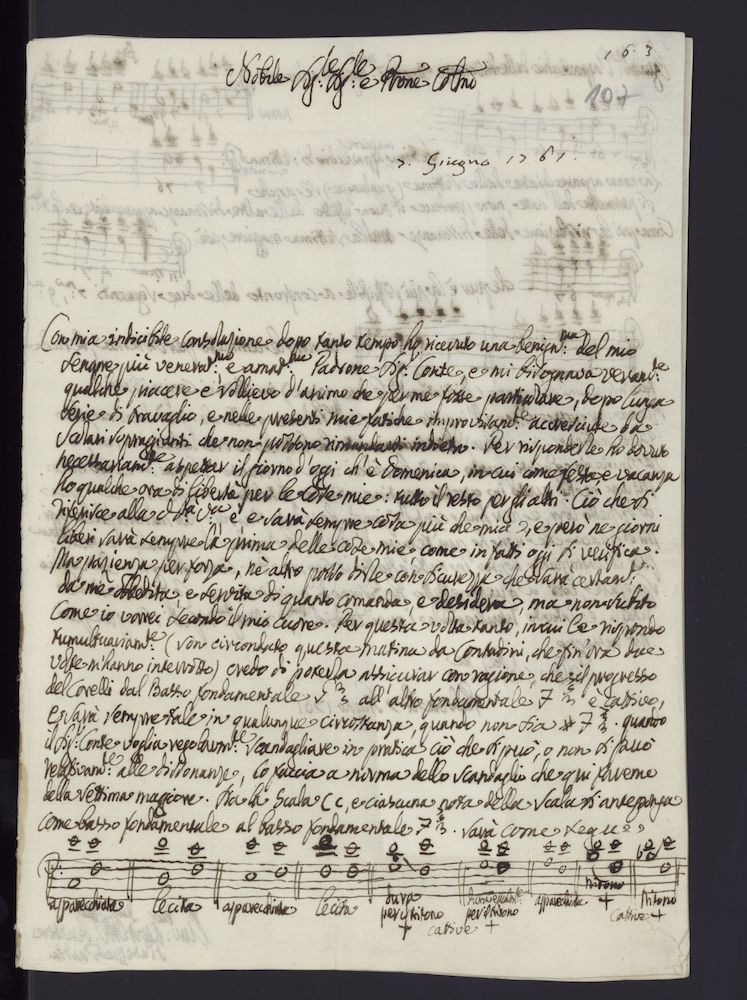 163
107
Nobile Sig:r Sig:r e Prone Colmo
7. Giugno 1761.
Con mia indicibile consolazione dopo tanto tempo ho ricevuto una benign:ma del mio
sempre più venerat:mo e amat:mo Padrone Sig: Conte, e mi bisognava veram:te
qualche piacere e sollievo d'animo che per me fosse particolare, dopo lunga
serie di travaglio, e nelle presenti mie fatiche improvisam:te accresciute da
Scolari sopragiunti che non possono rimandarsi indietro. Per risponderle ho dovuto
necessariam:te aspettar il giorno d'oggi ch'è Domenica, in cui come festa, e vacanza
ho qualche ora di libertà per le cose mie: tutto il resto per gli altri. Ciò che si
riferisce alla è e sarà sempre cosa più che mia, e però ne giorni
liberi sarà sempre la prima delle cose mie, come in fatti oggi si verifica.
Ma pazienza per forza, nè altro posso dirle con sicurezza che sarà certam:te
da me obbedita e servita di quanto comanda, e desidera, ma non subito
come io vorrei secondo il mio cuore. Per questa volta tanto, in cui le rispondo
tumultuariam:te (son circondato questa matina da Contadini, che fin ora due
volte mi hanno interrotto) credo di poterla assicurar con ragione, che il progresso
del Corelli dal Basso fondamentale 5 3 all'altro fondamentale 7 5 3 è cattivo,
e sarà sempre tale in qualunque circostanza, quando non sia # 7 5 3. quando
il Sig: Conte voglia regolarm:te scandagliare in pratica ciò che si può, o non si può
relativam:te alle dissonanze, lo faccia a norma dello scandaglio che qui faremo
della settima maggiore. Sia la Scala C c, e ciascuna nota della Scala si anteponga
come basso fondamentale al basso fondamentale 7 5 3. sarà come segue
apparecchiata lecita apparecchiata lecita dura apparecchiata tritono Tritono
per il tritono per il tritono + cattive +
+ cattive +